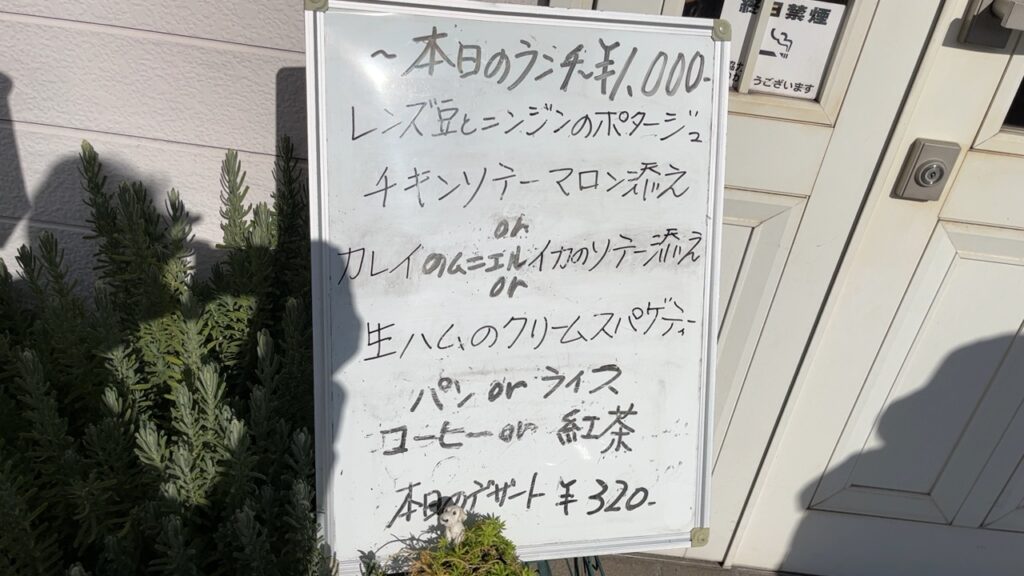 ～本日のランチ～¥1,000-
レンズ豆とニンジンのポタージュ
チキンソテーマロン添え
or
カレイのムニエルイカのソテー添え
or
生ハムのクリームスパゲティ
パン or ライス
コーヒー or 紅茶
本日のデザート ¥320-
日禁煙
うございます